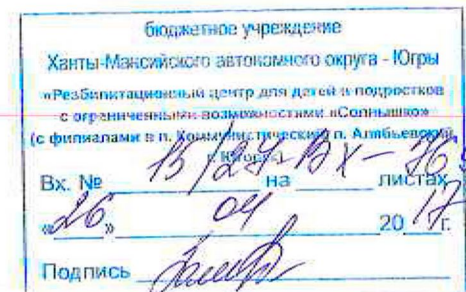 бюджетное учреждение
Ханты-Мансийского автономного округа - Югры
«Реабилитационный центр для детей и подростков
с ограниченными возможностями «Солнышко»
(с филиалами в п. Коммунистический п. Алябьевский,
г. Югорск)
Вх. № 15/27-Вх-76 на листах
«26» 04 2017г.
Подпись